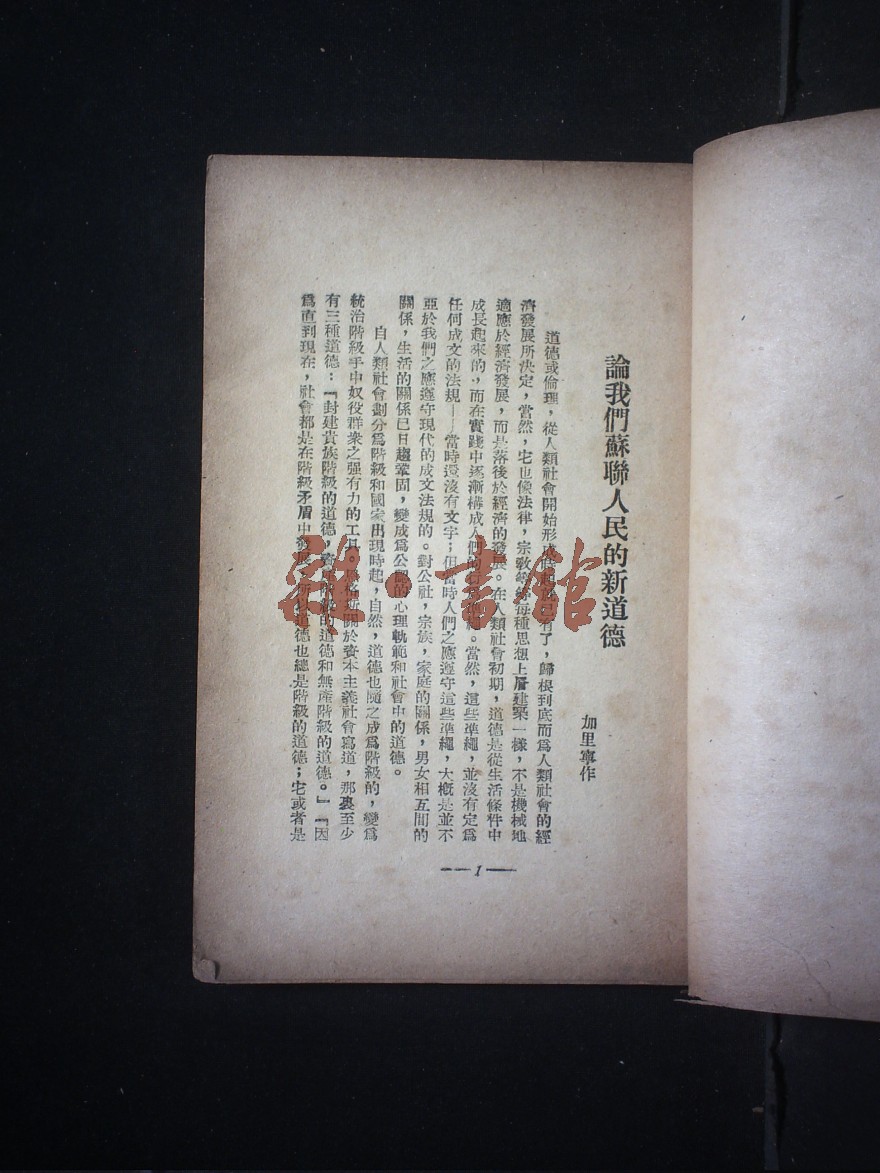 論我們蘇聯人民的新道德
加里寧作
道德或倫理，從人類社會開始形成時起就已有了，歸根到底而爲人類社會的經
濟發展所決定，當然，它也像法律，宗敎等等每種思想上層建築一樣，不是機械地
適應於經濟發展，而是落後於經濟的發展。在人類社會初期，道德是從生活條件中
成長起來的，而在實踐中逐漸構成人們的行爲準繩。當然，這些準繩，並沒有定爲
任何成文的法規——當時還沒有文字；但當時人們之應遵守這些準繩，大槪是並不
亞於我們之應遵守現代的成文法規的。對公社，宗族，家庭的關係，男女相互間的
關係，生活的關係已日趨鞏固，變成爲公認的心理軌範和社會中的道德。
自人類社會劃分爲階級和國家出現時起，自然，道德也隨之成爲階級的，變爲
統治階級手中奴役群衆之强有力的工具。恩格斯關於資本主義社會寫道，那裏至少
有三種道德：『封建貴族階級的道德，資產階級的道德和無產階級的道德。』『因
爲直到現在，社會都是在階級矛盾中發展，所以道德也總是階級的道德；它或者是
——1——
雜·書館